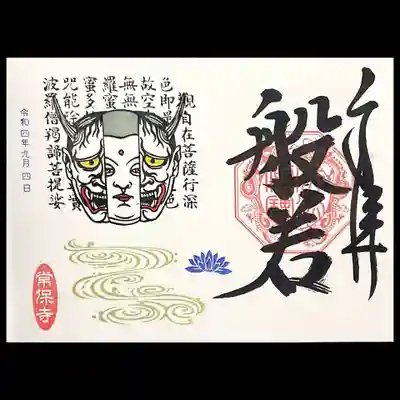 奉拝
般若
觀自在菩薩行深
色即是
色
故空
無無
羅蜜
蜜多
咒能除
波羅僧羯諦菩提娑
令和四年九月四日
常保寺